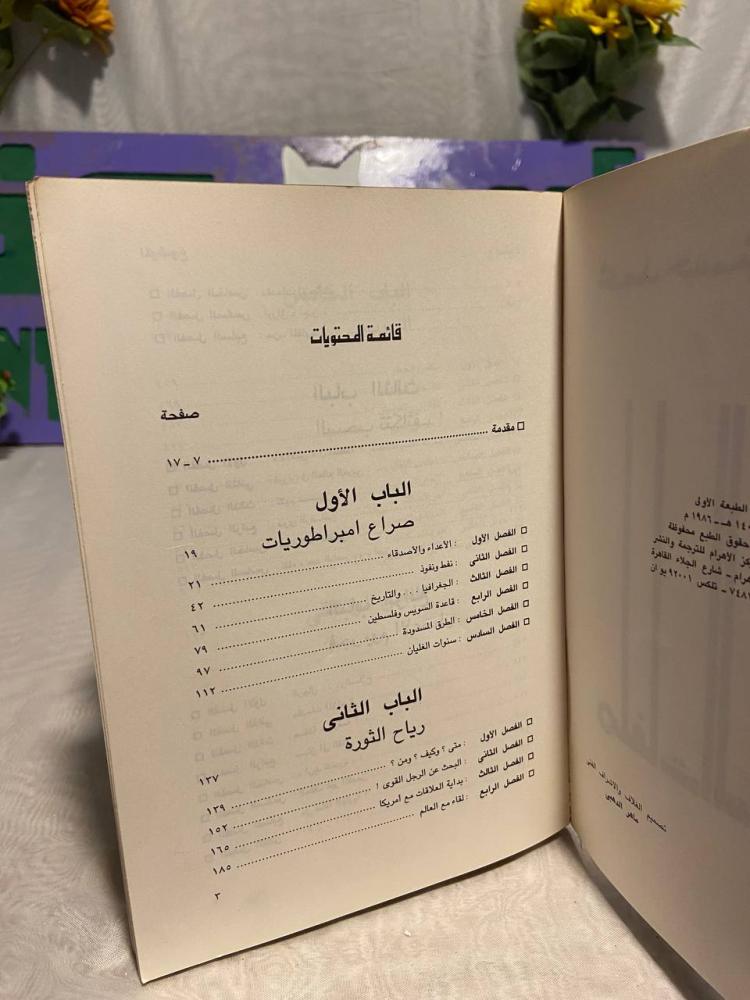 الطبعة الأولى
هـ - ١٩٨٦ م
حقوق الطبع محفوظة
الأهرام للترجمة والنشر
شارع الجلاء القاهرة
تلكس ٩٢٠٠١ يو ان
تصميم الغلاف والاشراف الفنى
ماهر الدهبى
قائمة المحتويات
صفحة
□ مقدمة ................ ٧ ـ ١٧
الباب الأول
صراع امبراطوريات ١٩
□ الفصل الأول : الأعداء والأصدقاء ................ ٢١
□ الفصل الثانى : نفط ونفوذ ................ ٤٢
□ الفصل الثالث : الجغرافيا . . . والتاريخ ................ ٦١
□ الفصل الرابع : قاعدة السويس وفلسطين ................ ٧٩
□ الفصل الخامس : الطرق المسدودة ................ ٩٧
□ الفصل السادس : سنوات الغليان ................ ١١٢
الباب الثانى
رياح الثورة ١٣٧
□ الفصل الأول : متى ؟ وكيف ؟ ومن ؟ ................ ١٣٩
□ الفصل الثانى : البحث عن الرجل القوى ! ................ ١٥٢
□ الفصل الثالث : بداية العلاقات مع امريكا ................ ١٦٥
□ الفصل الرابع : لقاء مع العالم ................ ١٨٥
٣